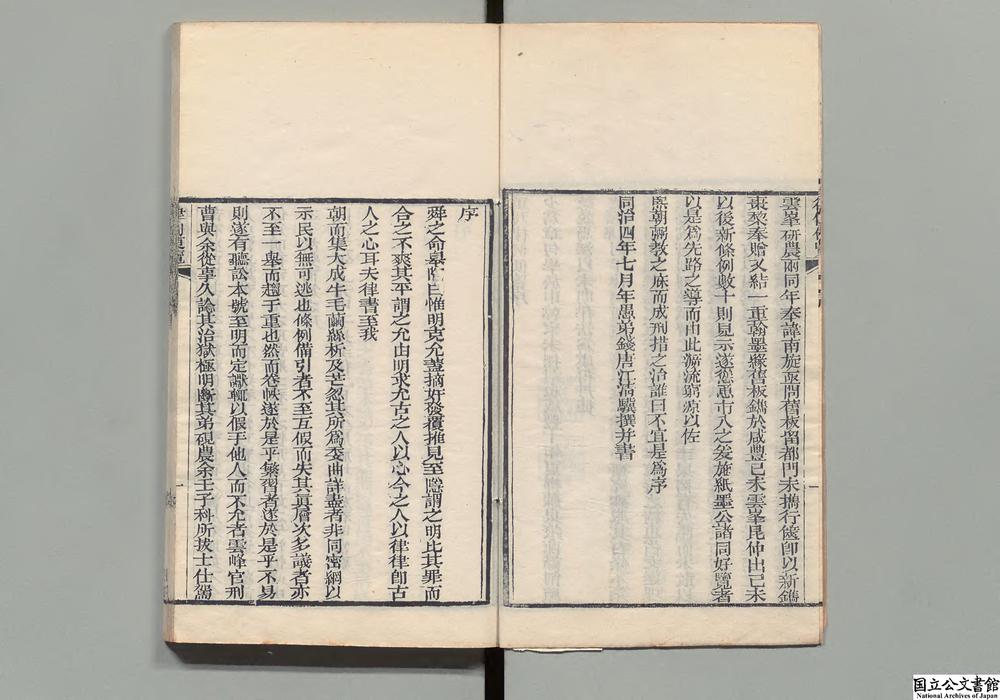 雲峯研農兩同年奉諱南旋亟問舊板留都門未攜行篋卽以新鐫
棗梨奉贈又結一重翰墨緣舊板鐫於咸豐己未雲峯昆仲出己未
以後新條例數十則見示遂慫恿市人之爰施紙墨公諸同好覽者
以是爲先路之導而由此泝流窮源以佐
熙朝弼教之庥而成刑措之治誰曰不宜是爲序
同治四年七月年愚弟錢唐江清驥撰并書
序
舜之命皋陶曰惟明克允蓋摘奸發覆推見至隱謂之明比其罪而
合之不爽其平謂之允由明求允古之人以心今之人以律律卽古
人之心耳夫律書至我
朝而集大成牛毛繭絲析及芒忽其所爲委曲詳盡者非同密網以
示民以無可逃也條例備引者不至互假而失其眞層次多議者亦
不至一舉而趨于重也然而卷帙遂於是乎繁習者遂於是乎不易
則遂有聽訟本號至明而定讞輒以假于他人而不允者雲峰官刑
曹與余從事久論其治獄極明斷其弟硯農余壬子科所拔士仕
一
一
国立公文書館
National Archives of Japan